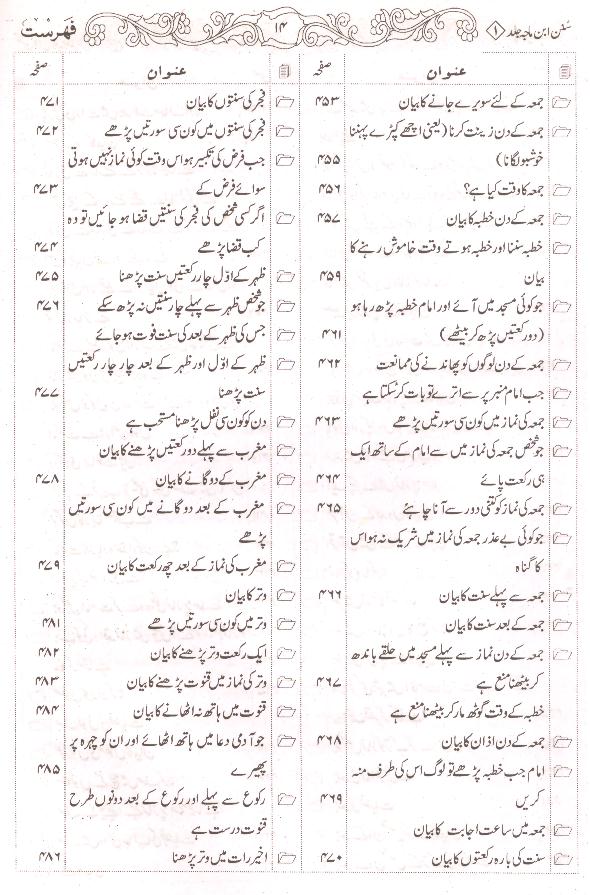 سُنن ابن ماجہ جلد ۱
۱۴
فہرست
عنوان
صفحہ
جمعہ کے لئے سویرے جانے کا بیان ۴۵۳
جمعہ کے دن زینت کرنا (یعنی اچھے کپڑے پہننا
خوشبو لگانا) ۴۵۵
جمعہ کا وقت کیا ہے؟ ۴۵۶
جمعہ کے دن خطبہ کا بیان ۴۵۷
خطبہ سننا اور خطبہ ہوتے وقت خاموش رہنے کا
بیان ۴۵۹
جو کوئی مسجد میں آئے اور امام خطبہ پڑھ رہا ہو
(دو رکعتیں پڑھ کر بیٹھے) ۴۶۱
جمعہ کے دن لوگوں کو پھاندنے کی ممانعت ۴۶۲
جب امام منبر پر سے اترے تو بات کر سکتا ہے
جمعہ کی نماز میں کون سی سورتیں پڑھے ۴۶۳
جو شخص جمعہ کی نماز میں سے امام کے ساتھ ایک
ہی رکعت پائے ۴۶۴
جمعہ کی نماز کو کتنی دور سے آنا چاہئے ۴۶۵
جو کوئی بے عذر جمعہ کی نماز میں شریک نہ ہو اس
کا گناہ
جمعہ سے پہلے سنت کا بیان ۴۶۶
جمعہ کے بعد سنت کا بیان
جمعہ کے دن نماز سے پہلے مسجد میں حلقے باندھ
کر بیٹھنا منع ہے ۴۶۷
خطبہ کے وقت گوٹھ مار کر بیٹھنا منع ہے
جمعہ کے دن اذان کا بیان ۴۶۸
امام جب خطبہ پڑھے تو لوگ اس کی طرف منہ
کریں ۴۶۹
جمعہ میں ساعت اجابت کا بیان
سنت کی بارہ رکعتوں کا بیان ۴۷۰
عنوان
صفحہ
فجر کی سنتوں کا بیان ۴۷۱
فجر کی سنتوں میں کون سی سورتیں پڑھے ۴۷۲
جب فرض کی تکبیر ہو اس وقت کوئی نماز نہیں ہوتی
سوائے فرض کے ۴۷۳
اگر کسی شخص کی فجر کی سنتیں قضا ہو جائیں تو وہ
کب قضا پڑھے ۴۷۴
ظہر کے اوّل چار رکعتیں سنت پڑھنا ۴۷۵
جو شخص ظہر سے پہلے چار سنتیں نہ پڑھ سکے ۴۷۶
جس کی ظہر کے بعد کی سنت فوت ہو جائے
ظہر کے اوّل اور ظہر کے بعد چار چار رکعتیں
سنت پڑھنا ۴۷۷
دن کو کون سی نفل پڑھنا مستحب ہے
مغرب سے پہلے دو رکعتیں پڑھنے کا بیان
مغرب کے دوگانے کا بیان ۴۷۸
مغرب کے بعد دوگانے میں کون سی سورتیں
پڑھے
مغرب کی نماز کے بعد چھ رکعت کا بیان ۴۷۹
وتر کا بیان
وتر میں کون سی سورتیں پڑھے ۴۸۱
ایک رکعت وتر پڑھنے کا بیان ۴۸۲
وتر کی نماز میں قنوت پڑھنے کا بیان ۴۸۳
قنوت میں ہاتھ نہ اٹھانے کا بیان ۴۸۴
جو آدمی دعا میں ہاتھ اٹھائے اور ان کو چہرہ پر
پھیرے ۴۸۵
رکوع سے پہلے اور رکوع کے بعد دونوں طرح
قنوت درست ہے
اخیر رات میں وتر پڑھنا ۴۸۶